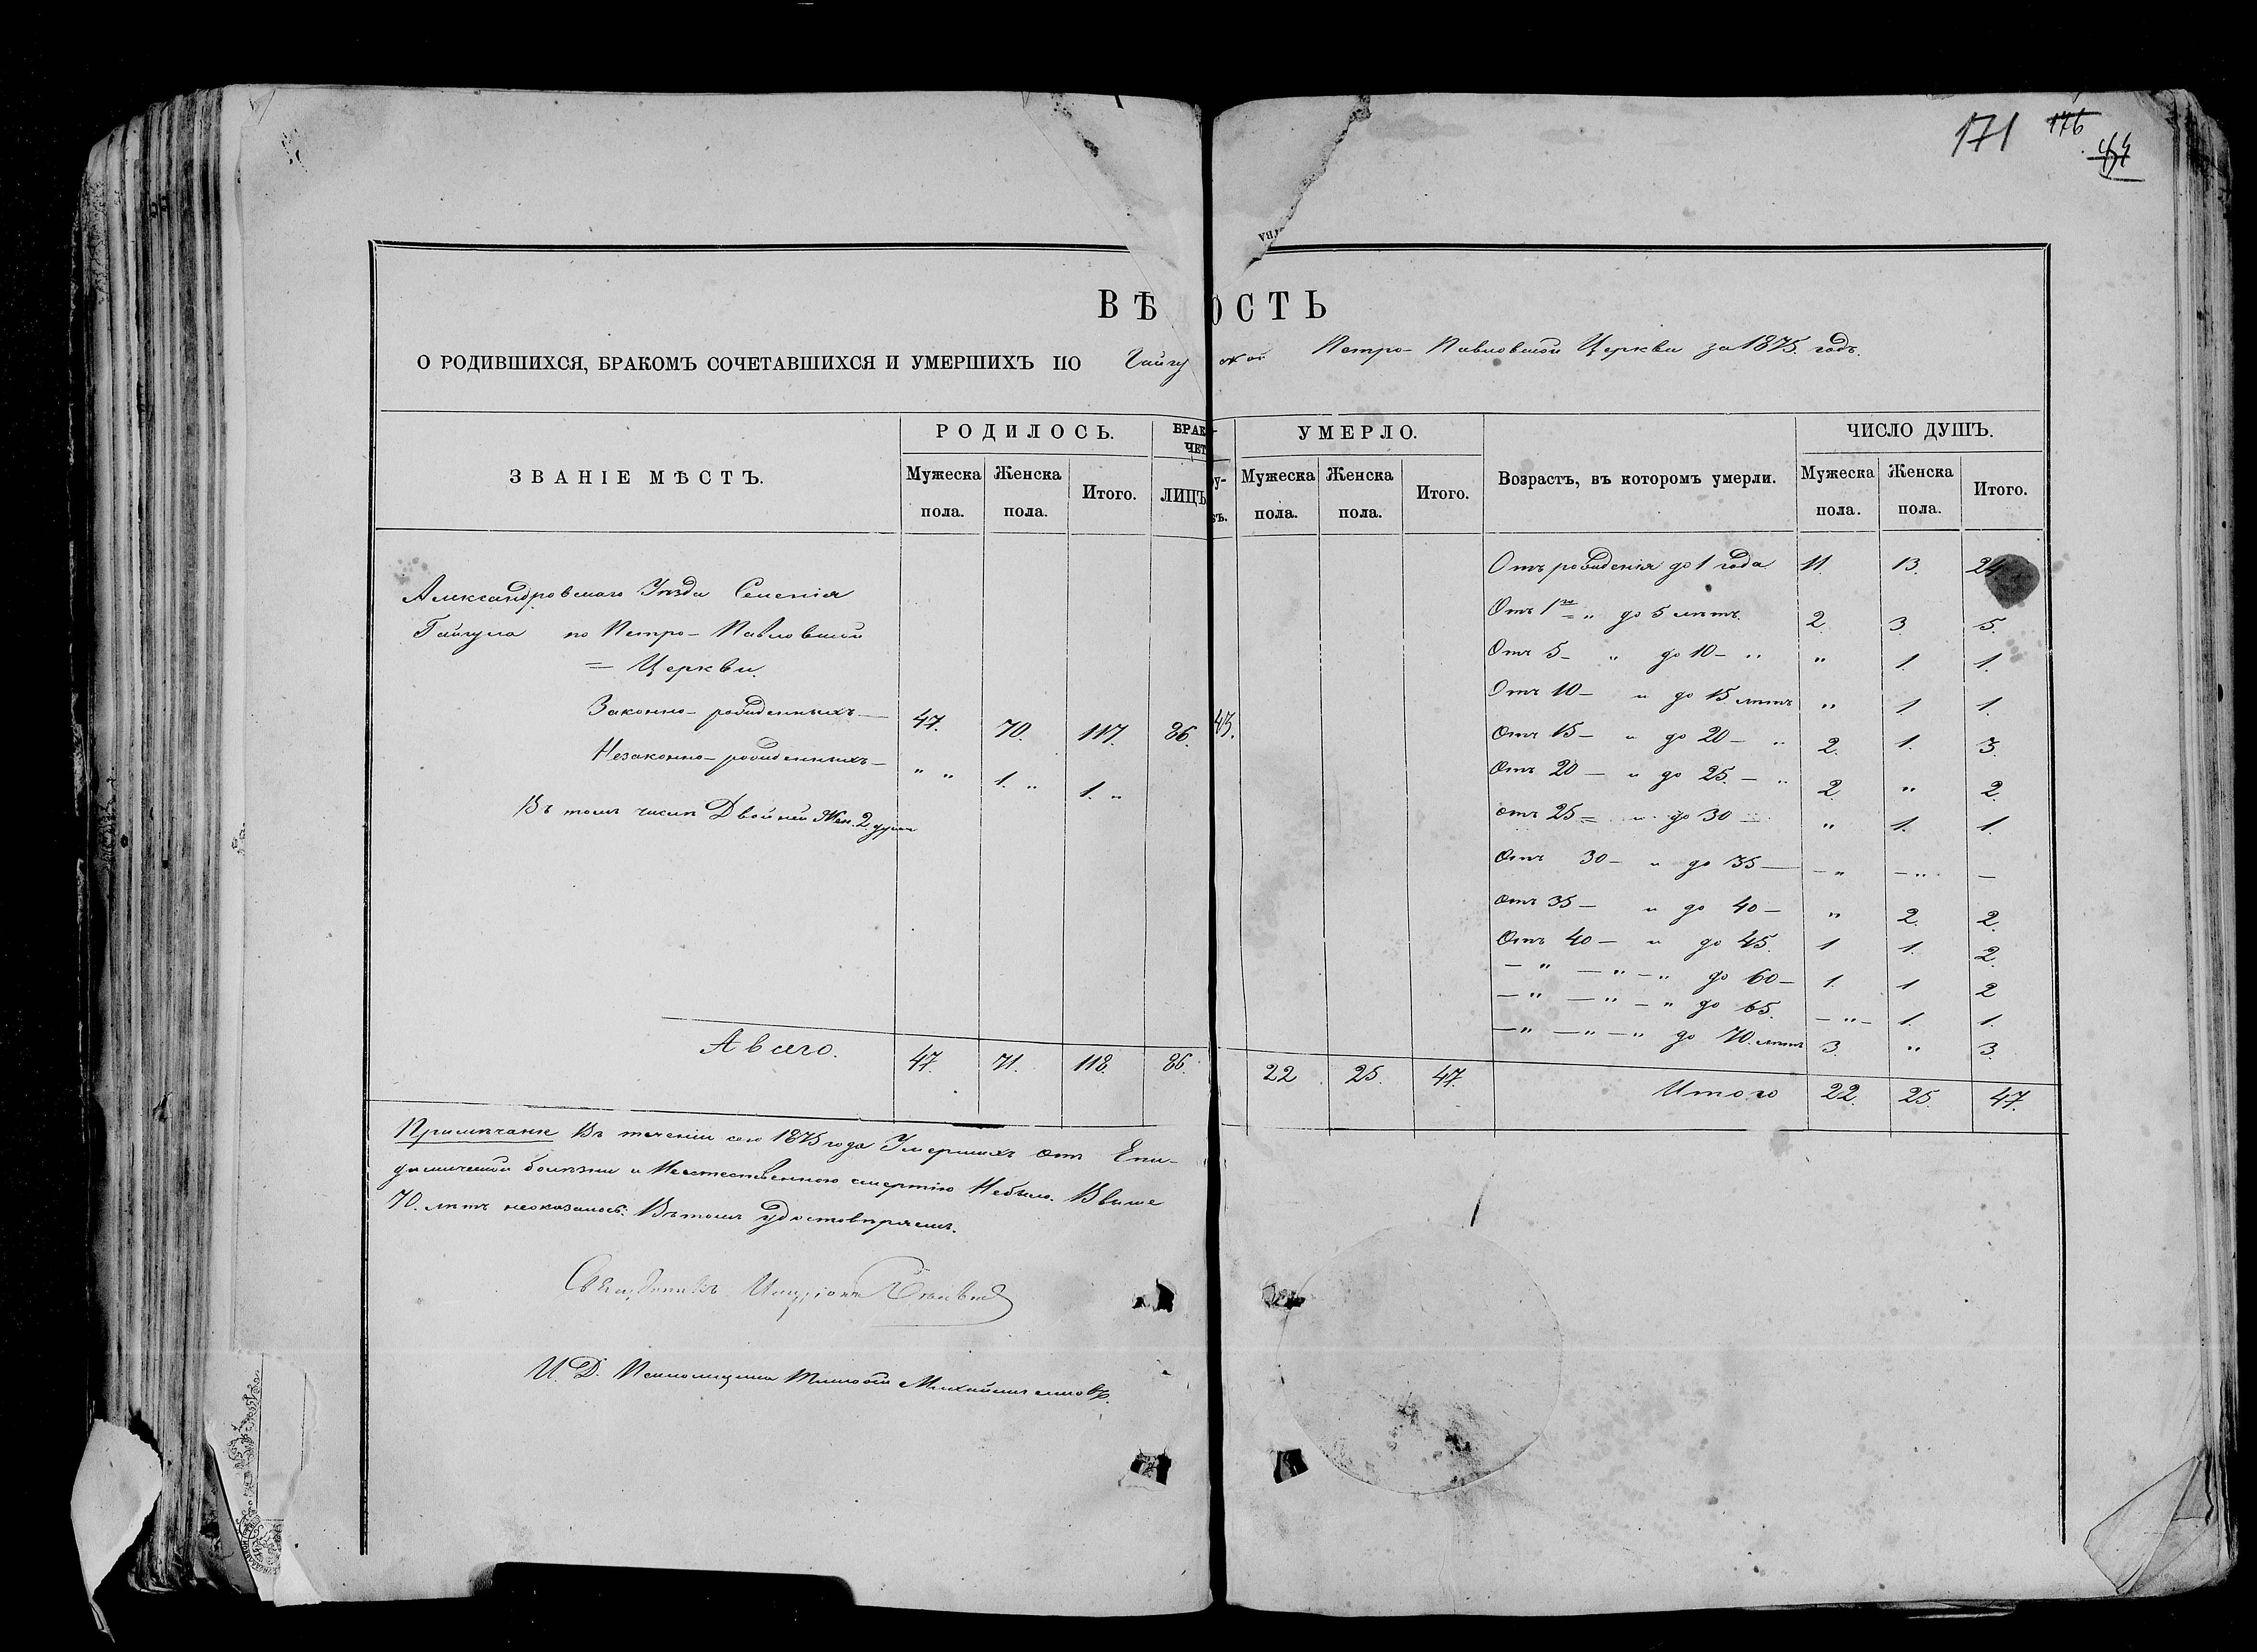 171 176
ВѢ ОСТЬ
О РОДИВШИХСЯ, БРАКОМЪ СОЧЕТАВШИХСЯ И УМЕРШИХЪ ПО Гайчу ской Петро-Павловской Церкви за 1875. годъ.
ЗВАНІЕ МѢСТЪ.
РОДИЛОСЬ.
Мужеска пола.
Женска пола.
Итого.
БРАК
ЧЕТ
ЛИЦЪ
УМЕРЛО.
Мужеска пола.
Женска пола.
Итого.
Возрастъ, въ которомъ умерли.
ЧИСЛО ДУШЪ.
Мужеска пола.
Женска пола.
Итого.
Александровскаго Уѣзда Селенія
Гайчула по Петро-Павловской
= Церкви.
Законно-рожденныхъ — 47. 70. 117. 86. 43.
Незаконно-рожденныхъ — " " 1. " 1. "
Въ томъ числѣ Двойней Жен. 2 души
А всего. 47. 71. 118. 86. 22 25. 47.
Отъ рожденія до 1 года 11. 13. 24
Отъ 1го " до 5 лѣтъ. 2. 3. 5.
Отъ 5 — " до 10 — " " 1. 1.
Отъ 10 — " до 15 лѣтъ " 1. 1.
Отъ 15 — " до 20 — " 2. 1. 3.
Отъ 20 — " до 25. — " 2. " 2.
отъ 25 = " до 30 — " 1. 1.
Отъ 30 — " до 35 — — " — " —
Отъ 35 — " до 40 — " 2. 2.
Отъ 40 — " до 45. 1 1. 2.
— " — " — " до 60 — 1. 1 2
— " — " — " до 65. — " — 1. 1.
— " — " — " до 70. лѣтъ 3. " 3.
Итого 22. 25. 47.
Примѣчаніе Въ теченіи сего 1875 года Умершихъ отъ Епи-
демической болѣзни и Неестественною смертію Небыло. Ввыше
70. лѣтъ неоказалось. Въ томъ удостовѣряемъ.
Священникъ
И. Д. Псаломщика Тимофей